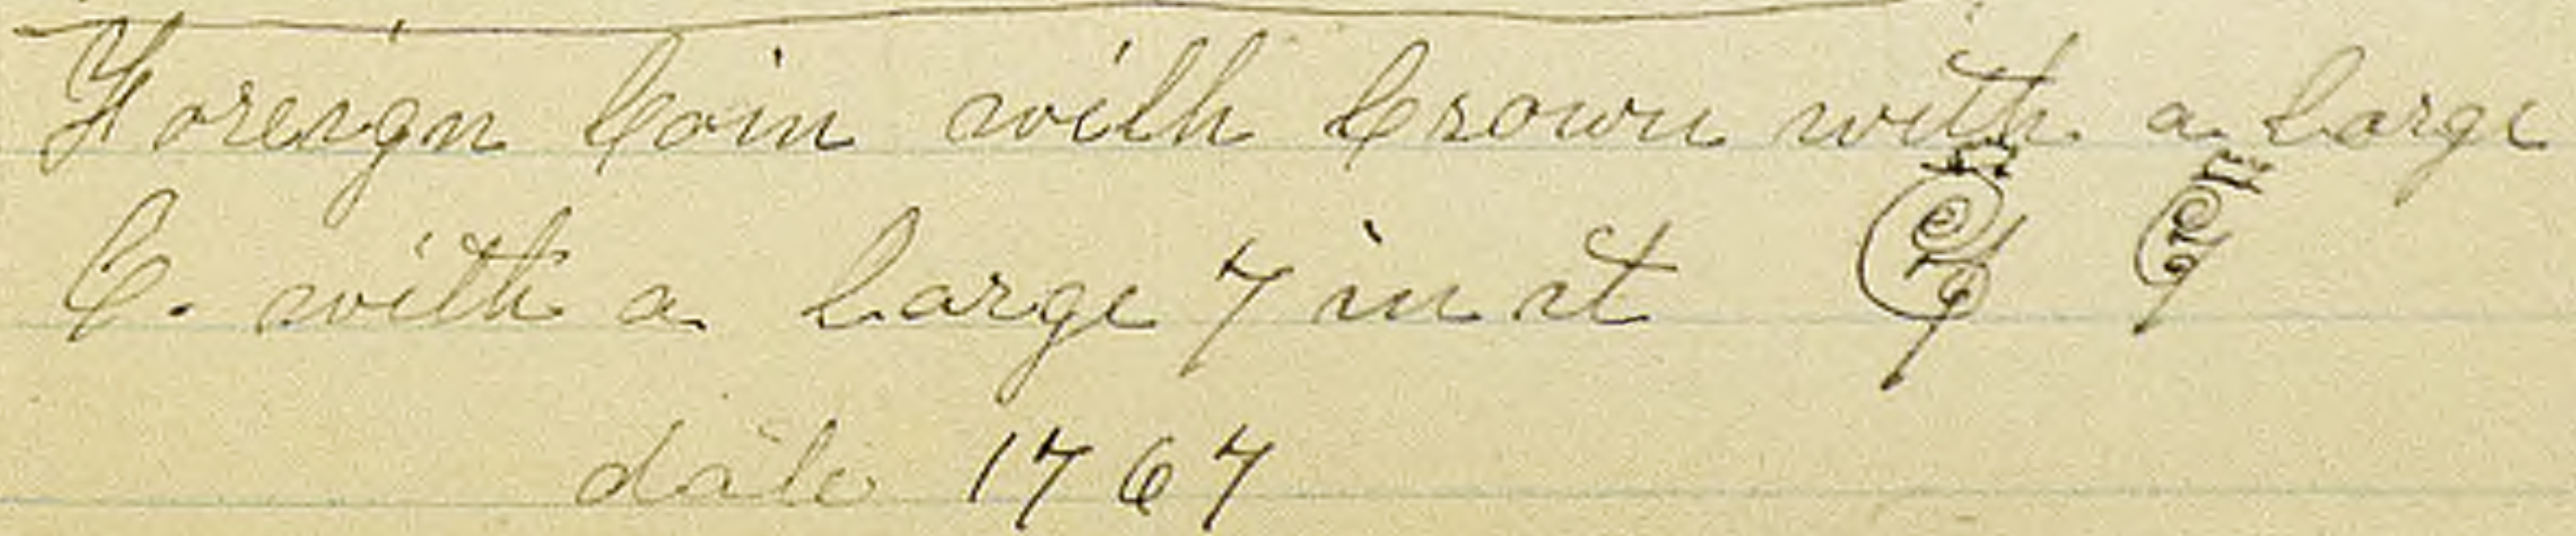 Foreign Coin with Crown with a large
C. with a large 7 in it
date 1767